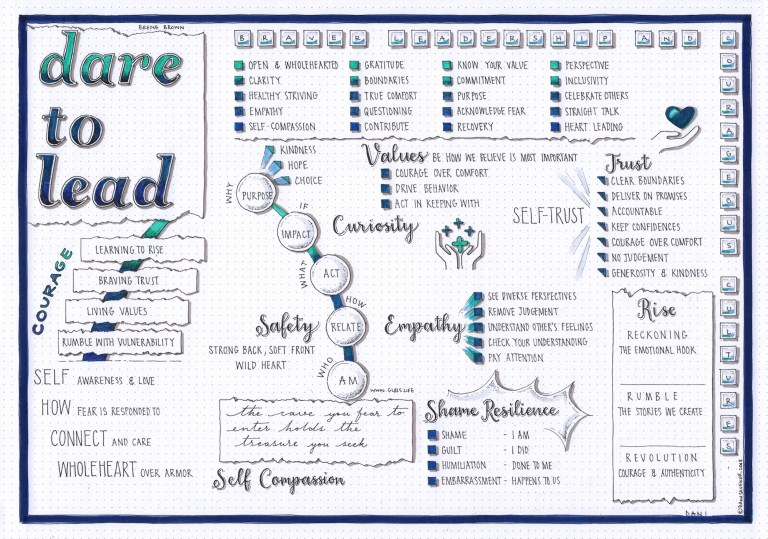 BRENÉ BROWN
dare
to
lead
BRAVER LEADERSHIP AND
COURAGEOUS CULTURES
OPEN & WHOLEHEARTED
CLARITY
HEALTHY STRIVING
EMPATHY
SELF-COMPASSION
GRATITUDE
BOUNDARIES
TRUE COMFORT
QUESTIONING
CONTRIBUTE
KNOW YOUR VALUE
COMMITMENT
PURPOSE
ACKNOWLEDGE FEAR
RECOVERY
PERSPECTIVE
INCLUSIVITY
CELEBRATE OTHERS
STRAIGHT TALK
HEART LEADING
COURAGE
LEARNING TO RISE
BRAVING TRUST
LIVING VALUES
RUMBLE WITH VULNERABILITY
SELF AWARENESS & LOVE
HOW FEAR IS RESPONDED TO
CONNECT AND CARE
WHOLEHEART OVER ARMOR
KINDNESS
HOPE
CHOICE
WHY
PURPOSE
IF
IMPACT
WHAT
ACT
HOW
RELATE
WHO
AM
Values BE HOW WE BELIEVE IS MOST IMPORTANT
COURAGE OVER COMFORT
DRIVE BEHAVIOR
ACT IN KEEPING WITH
Curiosity
SELF-TRUST
Trust
CLEAR BOUNDARIES
DELIVER ON PROMISES
ACCOUNTABLE
KEEP CONFIDENCES
COURAGE OVER COMFORT
NO JUDGEMENT
GENEROSITY & KINDNESS
Safety
STRONG BACK, SOFT FRONT
WILD HEART
Empathy
SEE DIVERSE PERSPECTIVES
REMOVE JUDGEMENT
UNDERSTAND OTHER'S FEELINGS
CHECK YOUR UNDERSTANDING
PAY ATTENTION
the cave you fear to
enter holds the
treasure you seek
Self Compassion
Shame Resilience
SHAME - I AM
GUILT - I DID
HUMILIATION - DONE TO ME
EMBARRASSMENT - HAPPENS TO US
Rise
RECKONING
THE EMOTIONAL HOOK
RUMBLE
THE STORIES WE CREATE
REVOLUTION
COURAGE & AUTHENTICITY
DANI